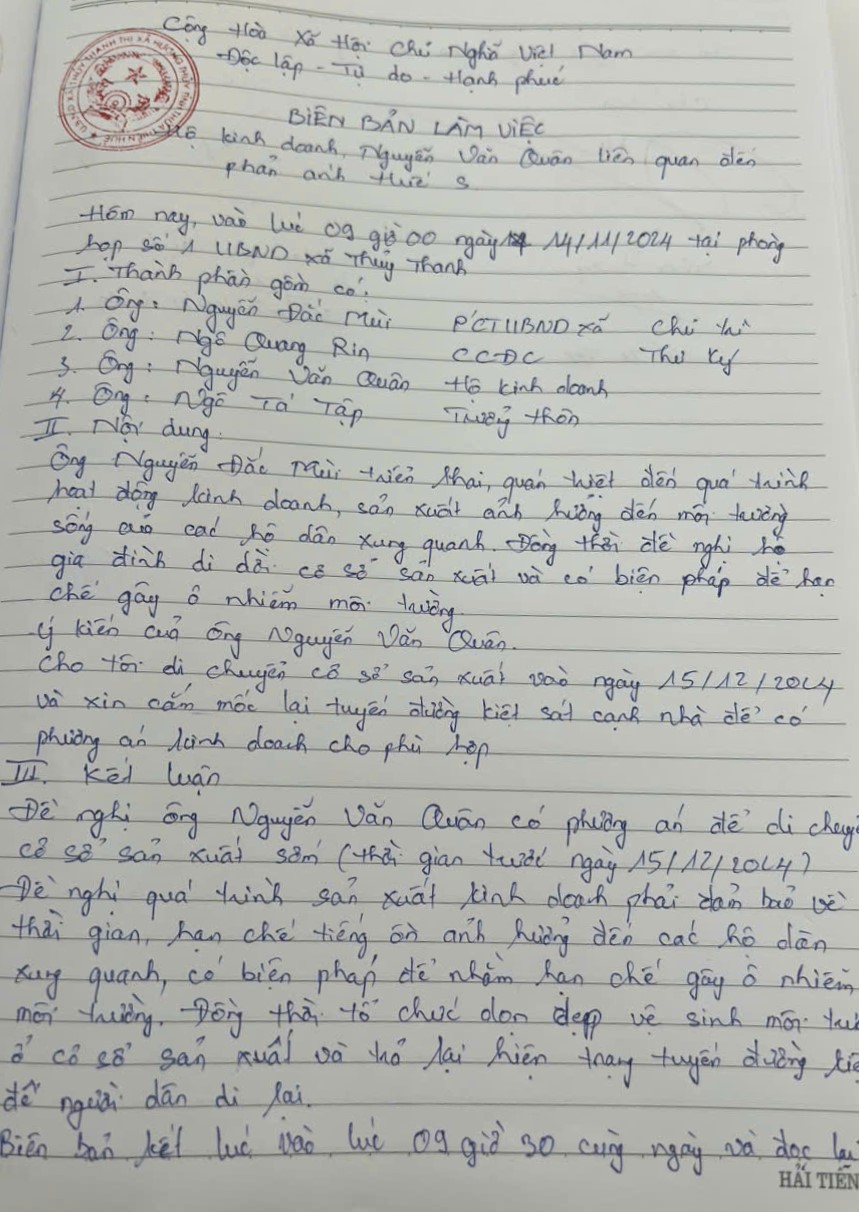 Cộng Hòa Xã Hội Chủ Nghĩa Việt Nam
Độc lập - Tự do - Hạnh phúc
BIÊN BẢN LÀM VIỆC
Hộ kinh doanh, Nguyễn Văn Quân liên quan đến
phản ánh Huế S
Hôm nay, vào lúc 09 giờ 00 ngày 14/11/2024 tại phòng
họp số 1 UBND xã Thủy Thanh
I. Thành phần gồm có:
1. Ông: Nguyễn Đắc Mùi PCT UBND xã Chủ trì
2. Ông: Ngô Quang Rin CCĐC Thư ký
3. Ông: Nguyễn Văn Quân Hộ kinh doanh
4. Ông: Ngô Tá Tập Trưởng thôn
II. Nội dung.
Ông Nguyễn Đắc Mùi triển khai, quán triệt đến quá trình
hoạt động kinh doanh, sản xuất ảnh hưởng đến môi trường
sống của các hộ dân xung quanh. Đồng thời đề nghị hộ
gia đình di dời cơ sở sản xuất và có biện pháp để hạn
chế gây ô nhiễm môi trường.
Ý kiến của ông Nguyễn Văn Quân.
Cho tôi di chuyển cơ sở sản xuất vào ngày 15/12/2024
và xin cắm mốc lại tuyến đường kiệt sát cạnh nhà để có
phương án kinh doach cho phù hợp
III. Kết luận
Đề nghị ông Nguyễn Văn Quân có phương án để di chuyể
cơ sở sản xuất sớm (thời gian trước ngày 15/12/2024)
Đề nghị quá trình sản xuất kinh doach phải đảm bảo về
thời gian, hạn chế tiếng ồn ảnh hưởng đến các hộ dân
xung quanh, có biện pháp để nhằm hạn chế gây ô nhiễm
môi trường. Đồng thời tổ chức dọn dẹp vệ sinh môi trườ
ở cơ sở sản xuất và trả lại hiện trạng tuyến đường kiệ
để người dân đi lại.
Biên bản kết lúc vào lúc 09 giờ 30 cùng ngày và đọc lại
HẢI TIẾN